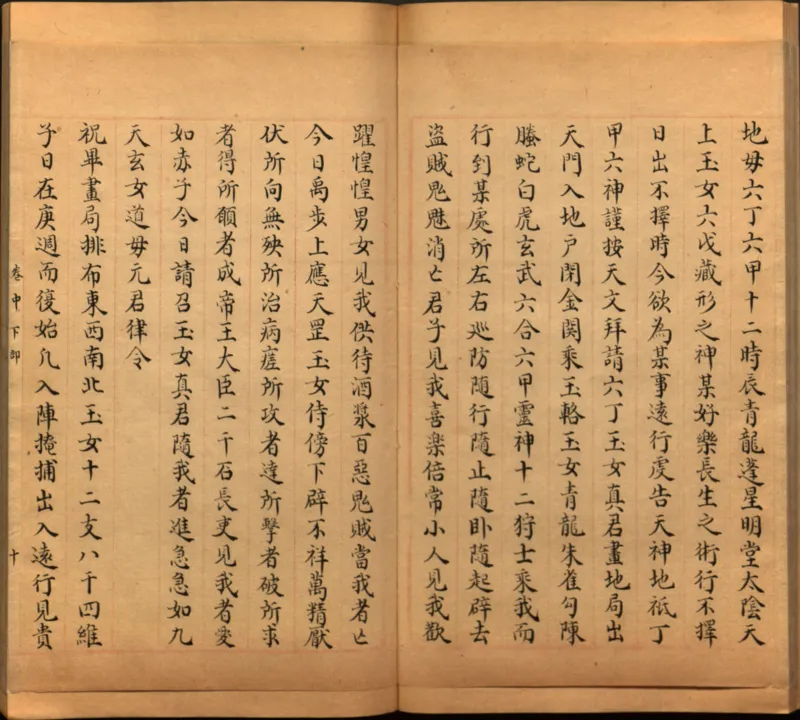 地毋六丁六甲十二時辰青龍逢星明堂太陰天
上玉女六戊藏形之神某好樂長生之術行不擇
日出不擇時今欲為某事遠行虔告天神地祇丁
甲六神謹按天文拜請六丁玉女真君畫地局出
天門入地户閉金関乘玉輅玉女青龍朱雀勾陳
螣蛇白虎玄武六合六甲靈神十二狩士乘我而
行到某處所左右巡防隨行隨止隨卧隨起辟去
盜賊鬼魅消亡君子見我喜樂倍常小人見我歡
躍惶惶男女見我供待酒漿百惡鬼賊當我者亡
今日禹步上應天罡玉女侍傍下辟不祥萬精厭
伏所向無殃所治病瘥所攻者達所擊者破所求
者得所願者成帝王大臣二千石長吏見我者愛
如赤子今日請召玉女真君隨我者進急急如九
天玄女道毋元君律令
祝畢畫局排布東西南北玉女十二支八千四維
子日在庚週而復始凢入陣掩捕出入遠行見貴
卷中下卽
十